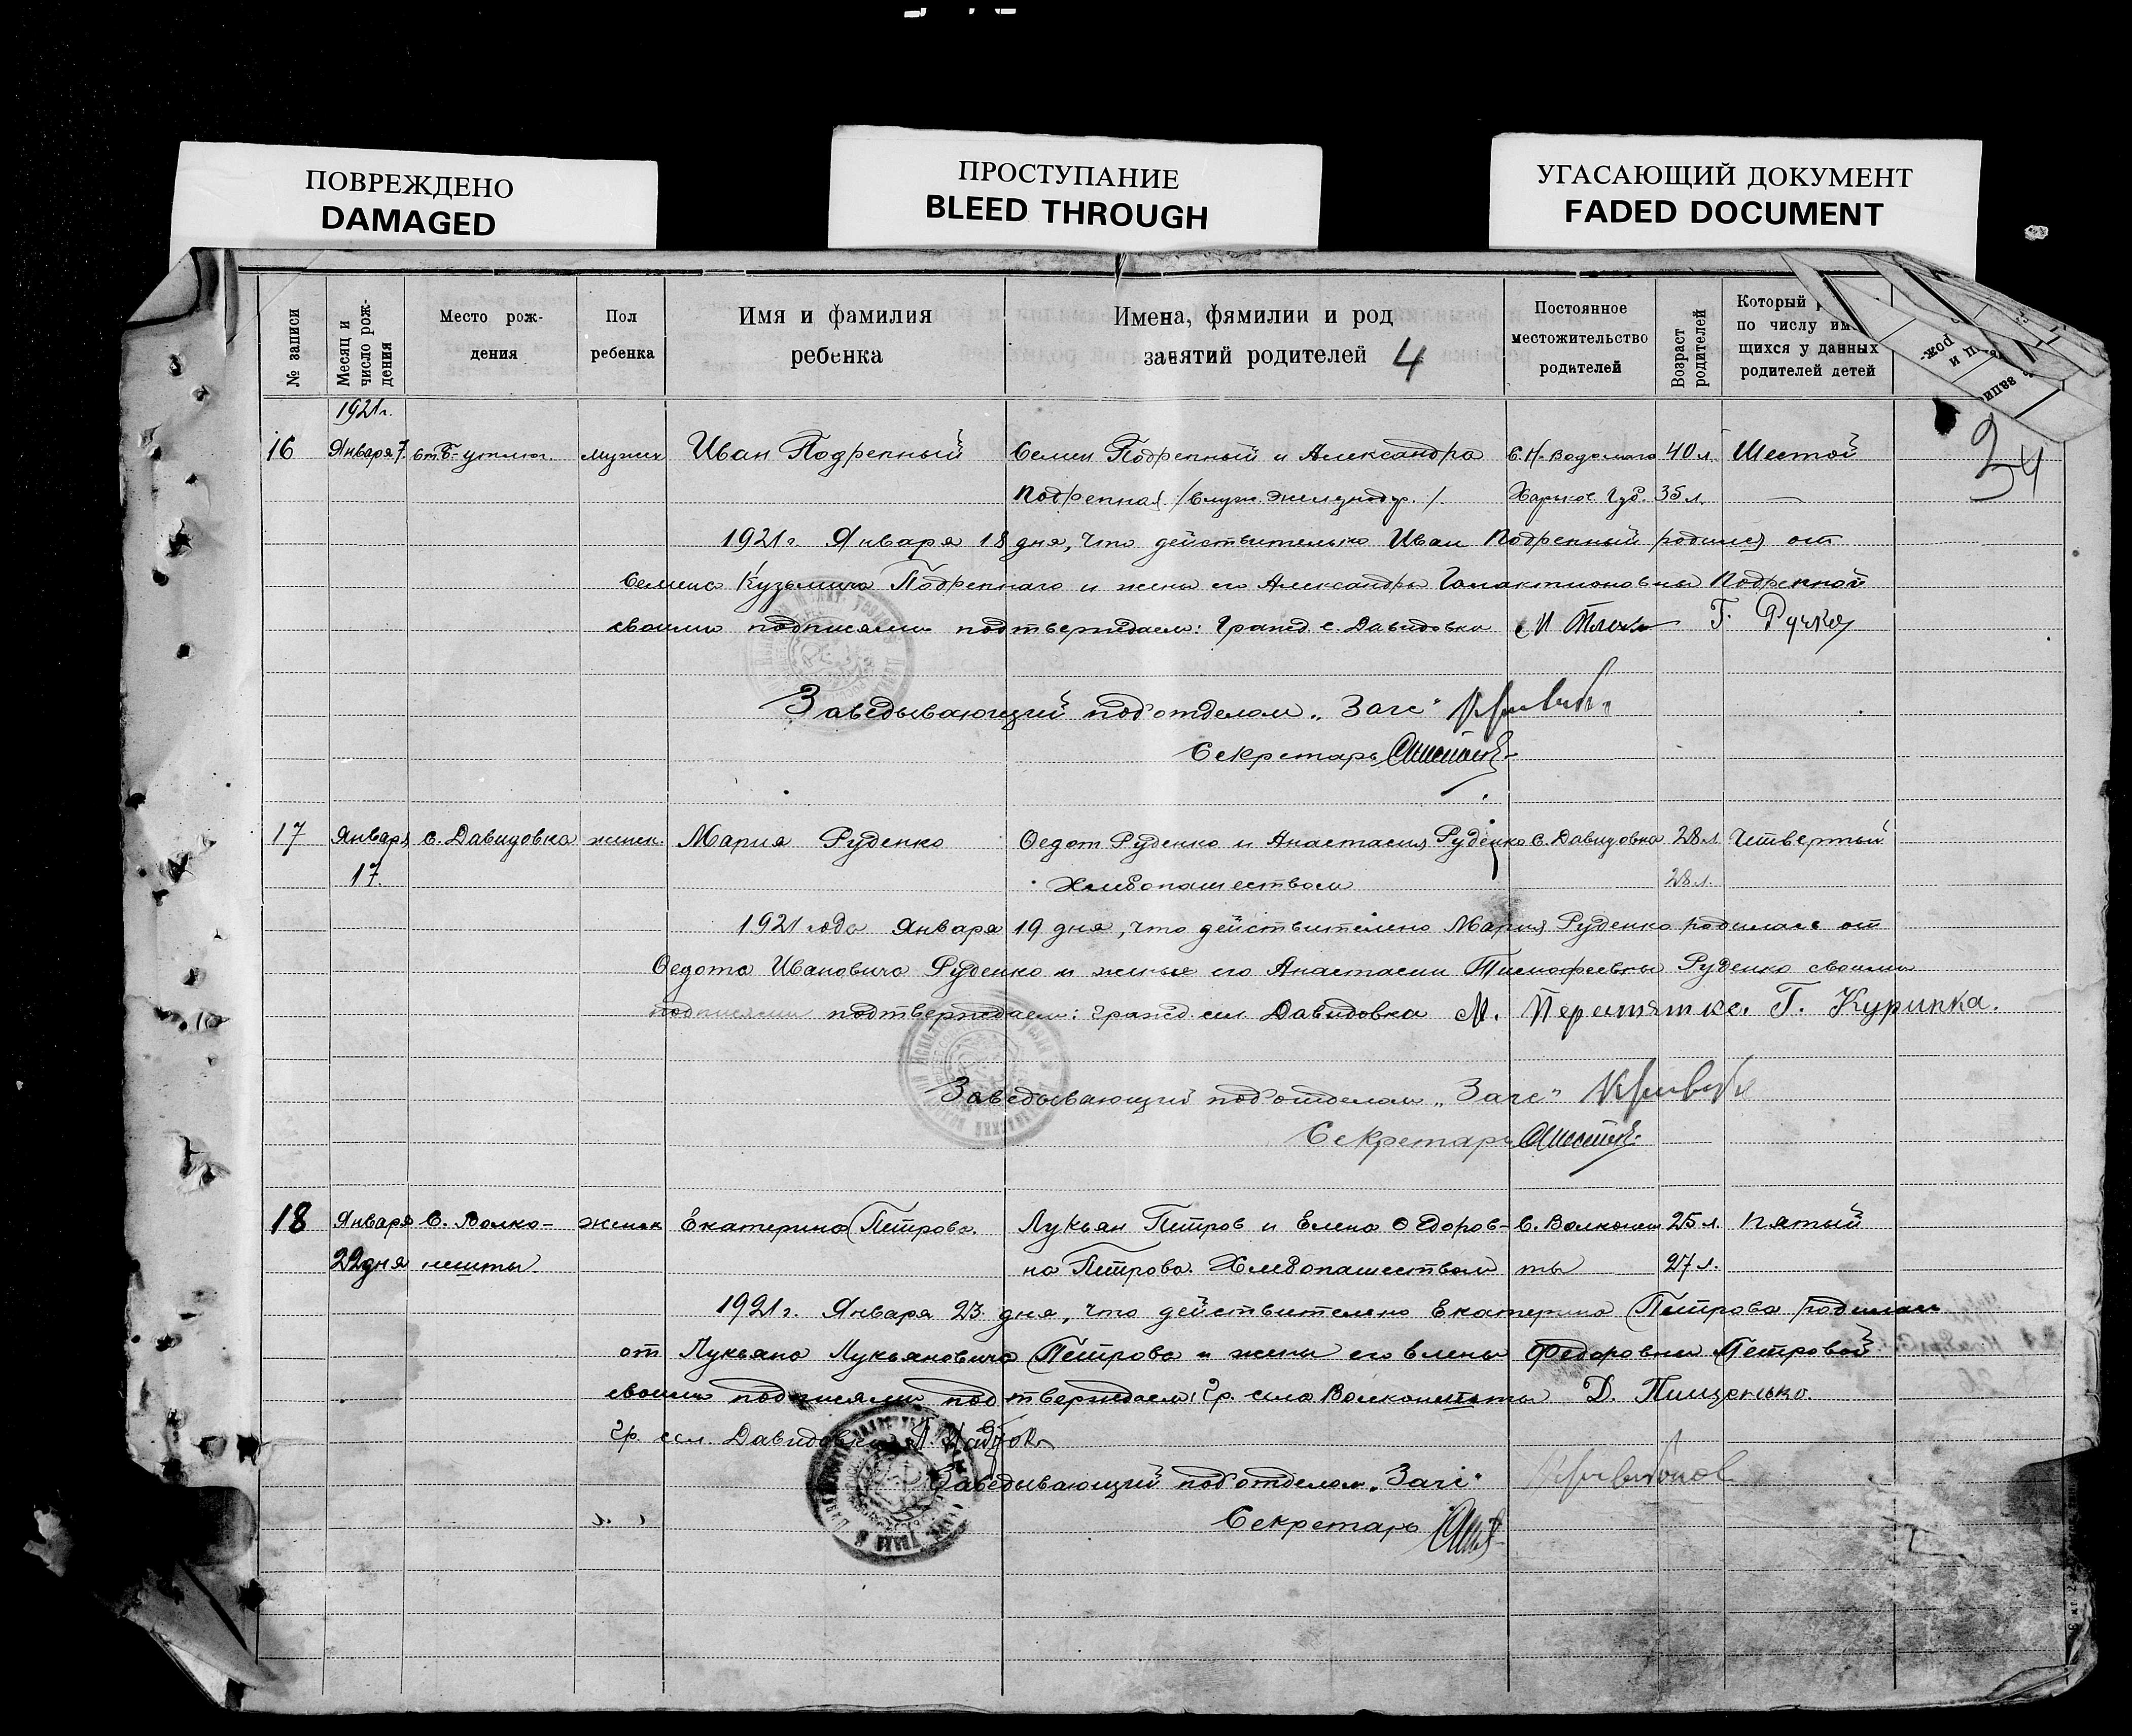 ПОВРЕЖДЕНО
DAMAGED
ПРОСТУПАНИЕ
BLEED THROUGH
УГАСАЮЩИЙ ДОКУМЕНТ
FADED DOCUMENT
№ записи
Месяц и число рож-дения
Место рож-дения
Пол ребенка
Имя и фамилия ребенка
Имена, фамилии и род занятий родителей 4
Постоянное местожительство родителей
Возраст родителей
Который по числу щихся у данных родителей детей
1921г.
34
16 Января 7 ст. мужск Иван Подрепный Семен Подрепный и Александра 40 л. Шестой
Подрепная /служ. железнодор./ Харьков. Губ. 35 л. —
1921г. Января 18 дня, что действительно Иван Подрепный родился от
Семена Кузьмича Подрепнаго и жены его Александры Галактионовны Подрепной
своими подписями подтверждаем: Гражд. с. Давидовки
Заведывающий подотделом „Загс"
Секретарь
17 Января с. Давидовка женск. Мария Руденко Федот Руденко и Анастасия Руденко с. Давидовка 28 л. Четвертый
17. Хлебопашеством 28 л.
1921 года Января 19 дня, что действительно Мария Руденко родилась от
Федота Ивановича Руденко и жены его Анастасии Тимофеевны Руденко своими
подписями подтверждаем: гражд. сел. Давидовки М. Г. Курипка.
Заведывающий подотделом „Загс"
Секретарь
18 Января С. Волко- женск Екатерина Петрова. Лукьян Петров и Елена Федоров- С. Волконеш 25 л. Пятый
22 дня нешты на Петрова. Хлебопашеством ты 27 л.
1921г. Января 23 дня, что действительно Екатерина Петрова родилась
от Лукьяна Лукьяновича Петрова и жены его Елены Федоровны Петровой
своими подписями подтверждаем: гр. села Волконешты Д. Пищенько.
гр. сел. Давидовки
Заведывающий подотделом „Загс"
Секретарь